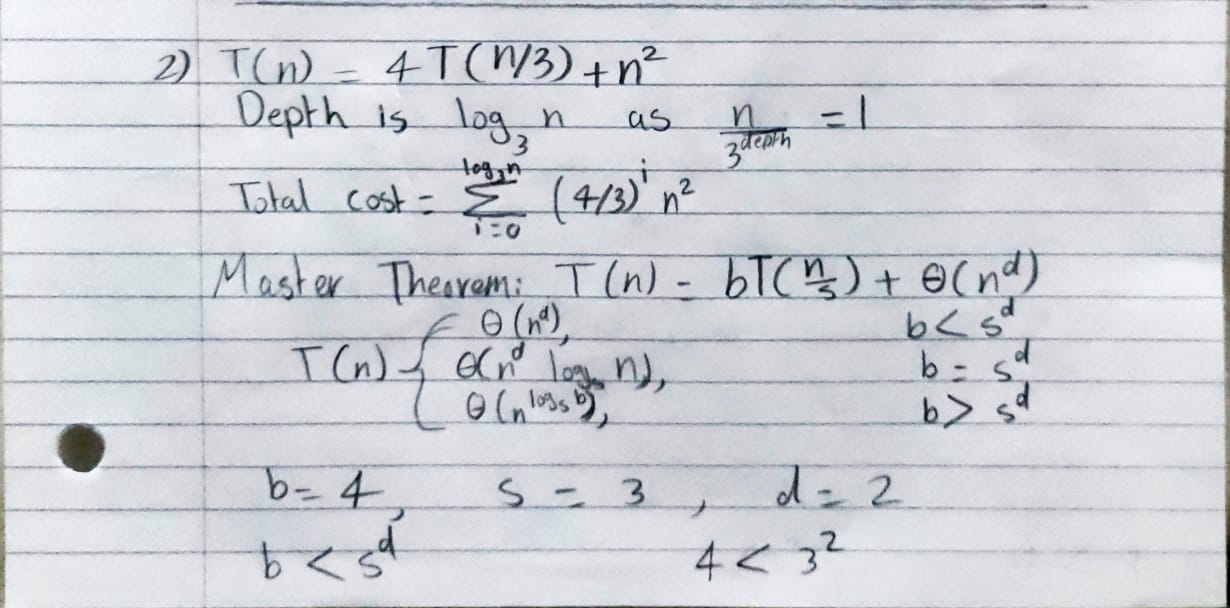 2) T(n) = 4T(n/3) + n²
Depth is log₃ n as n/3^depth = 1
Total cost = Σ_{i=0}^{log₃n} (4/3)^i n²
Master Theorem: T(n) = bT(n/s) + θ(n^d)
T(n) { θ(n^d), b < s^d
θ(n^d log n), b = s^d
θ(n^{log_s b}), b > s^d
b = 4, s = 3, d = 2
b < s^d 4 < 3²